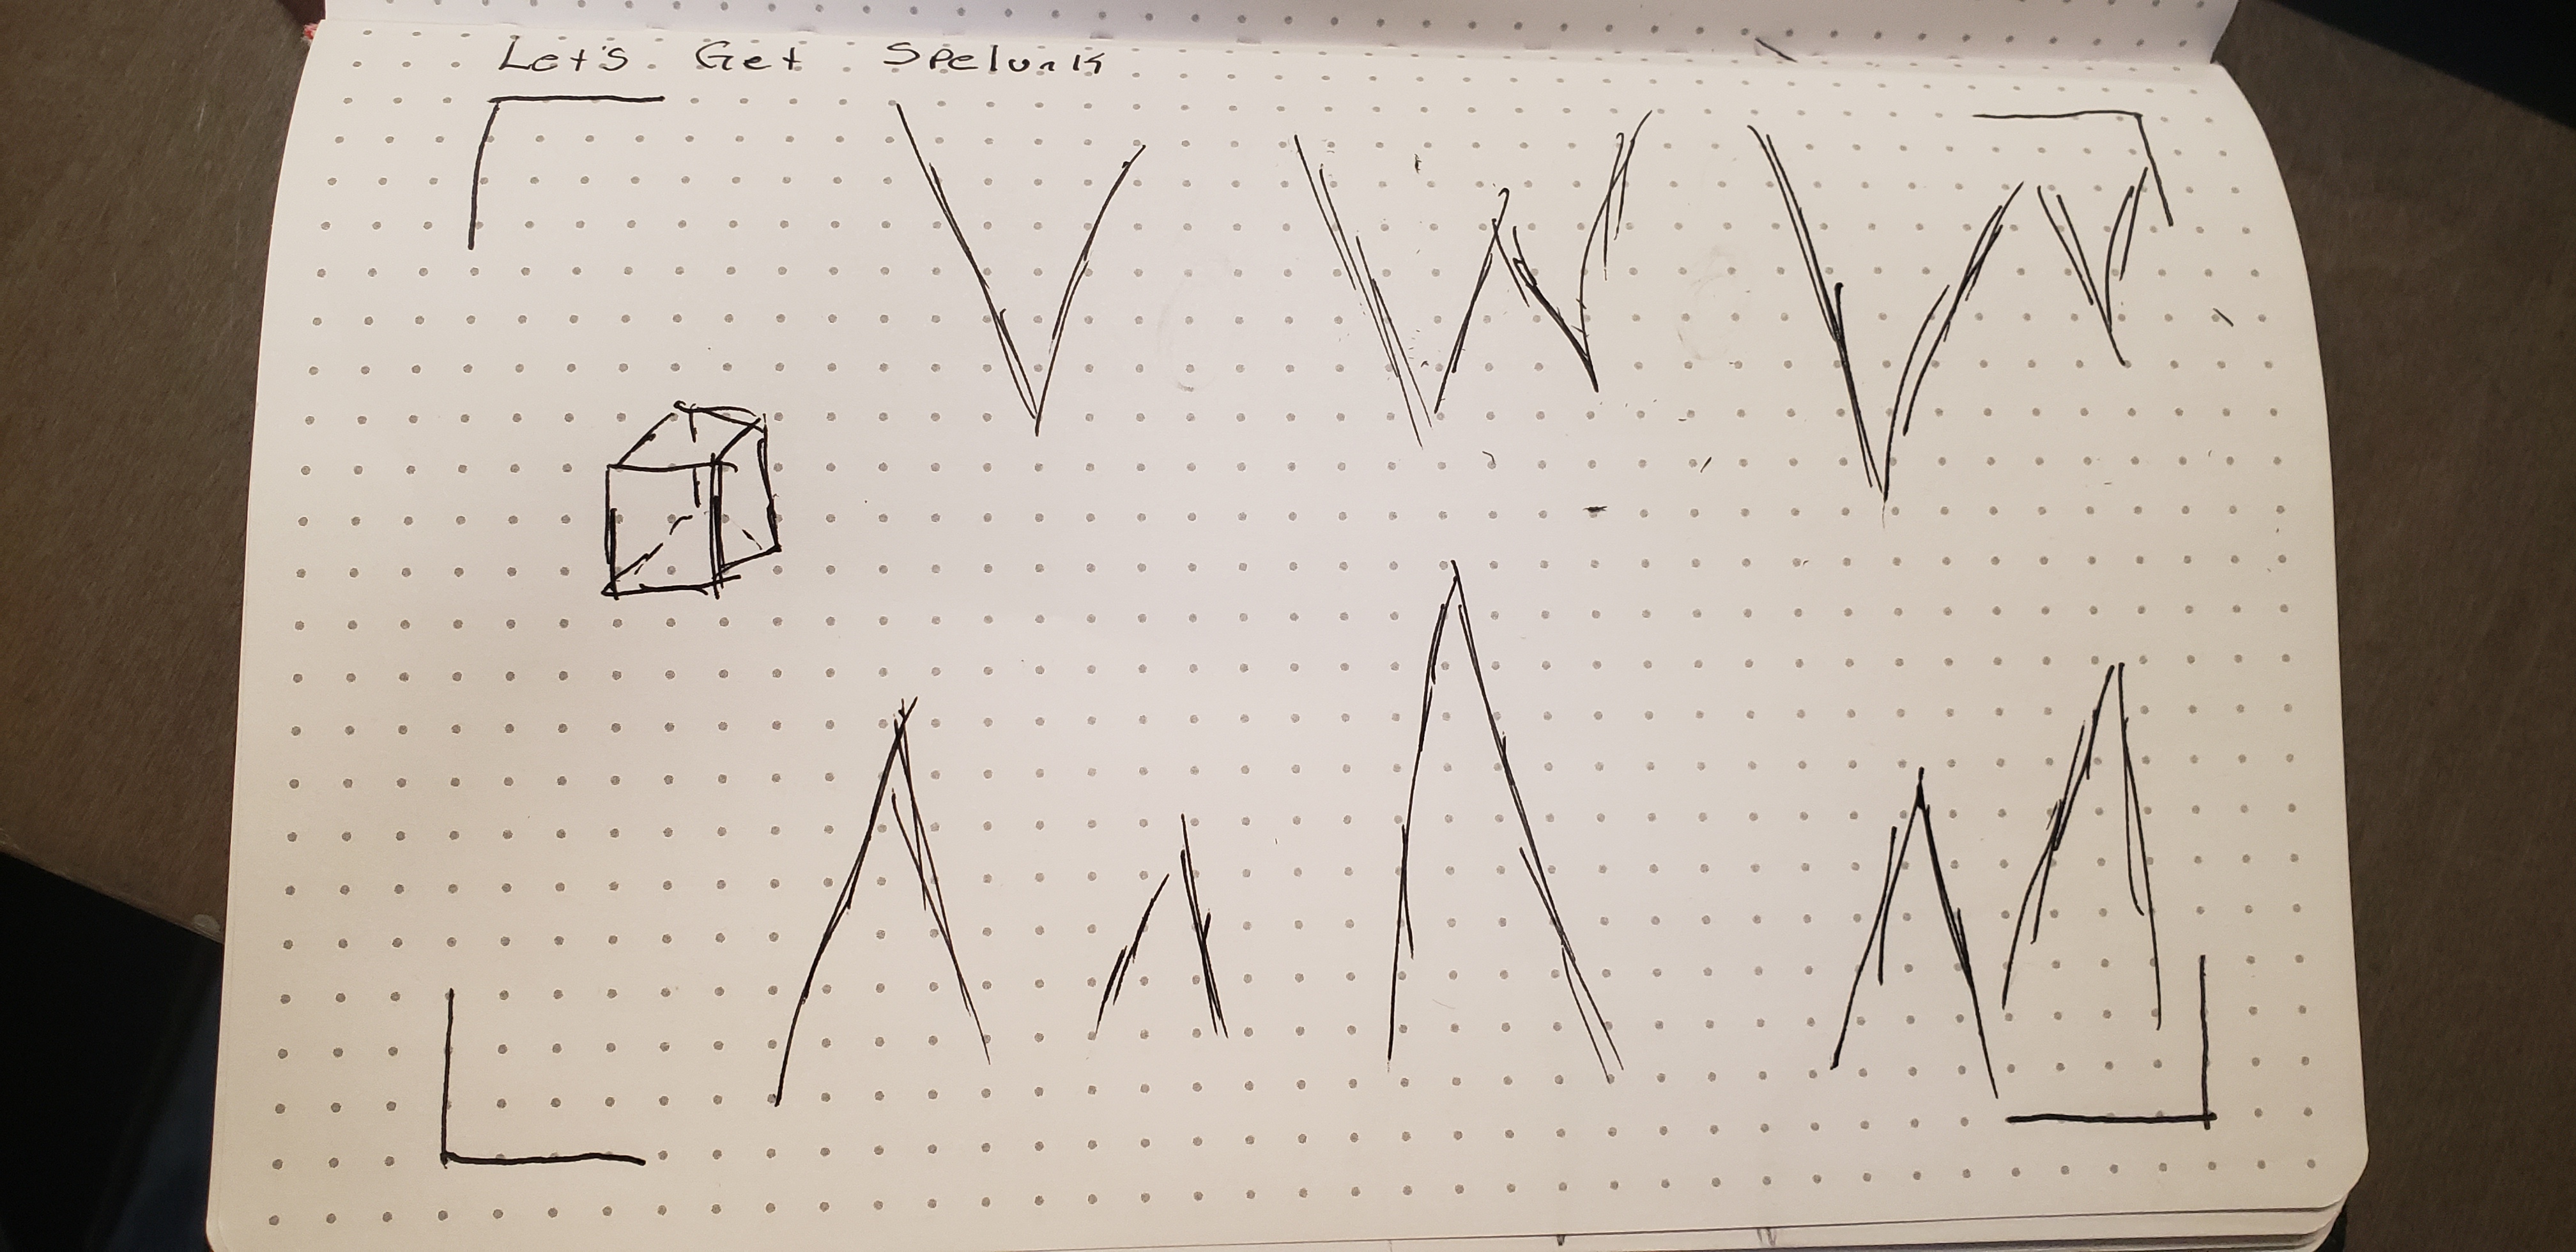 Let's Get Spelunk